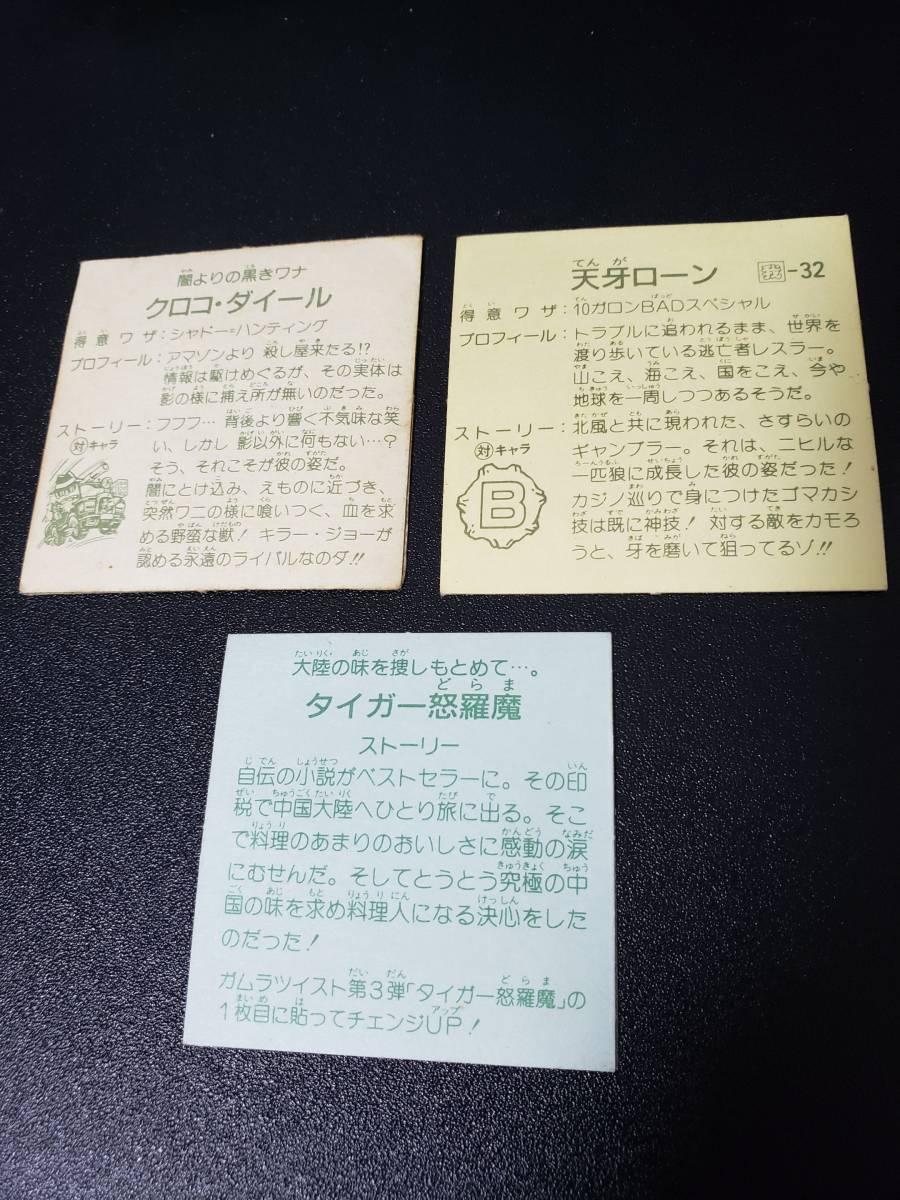 闇よりの黒きワナ
クロコ・ダイール
得意ワザ:シャドー=ハンティング
プロフィール:アマゾンより 殺し屋来たる!?
情報は駆けめぐるが、その実体は
影の様に捕え所が無いのだった。
ストーリー:フフフ… 背後より響く不気味な笑
対キャラ
い、しかし 影以外に何もない…?
そう、それこそが彼の姿だ。
闇にとけ込み、えものに近づき、
突然ワニの様に喰いつく、血を求
める野蛮な獣! キラー・ジョーが
認める永遠のライバルなのダ!!
天牙ローン
-32
得意ワザ:10ガロンBADスペシャル
プロフィール:トラブルに追われるまま、世界を
渡り歩いている逃亡者レスラー。
山こえ、海こえ、国をこえ、今や
地球を一周しつつあるそうだ。
ストーリー:北風と共に現われた、さすらいの
対キャラ
ギャンブラー。それは、ニヒルな
一匹狼に成長した彼の姿だった!
カジノ巡りで身につけたゴマカシ
技は既に神技! 対する敵をカモろ
うと、牙を磨いて狙ってるゾ!!
B
大陸の味を捜しもとめて…。
タイガー怒羅魔
ストーリー
自伝の小説がベストセラーに。その印
税で中国大陸へひとり旅に出る。そこ
で料理のあまりのおいしさに感動の涙
にむせんだ。そしてとうとう究極の中
国の味を求め料理人になる決心をした
のだった!
ガムラツイスト第3弾「タイガー怒羅魔」の
1枚目に貼ってチェンジUP!